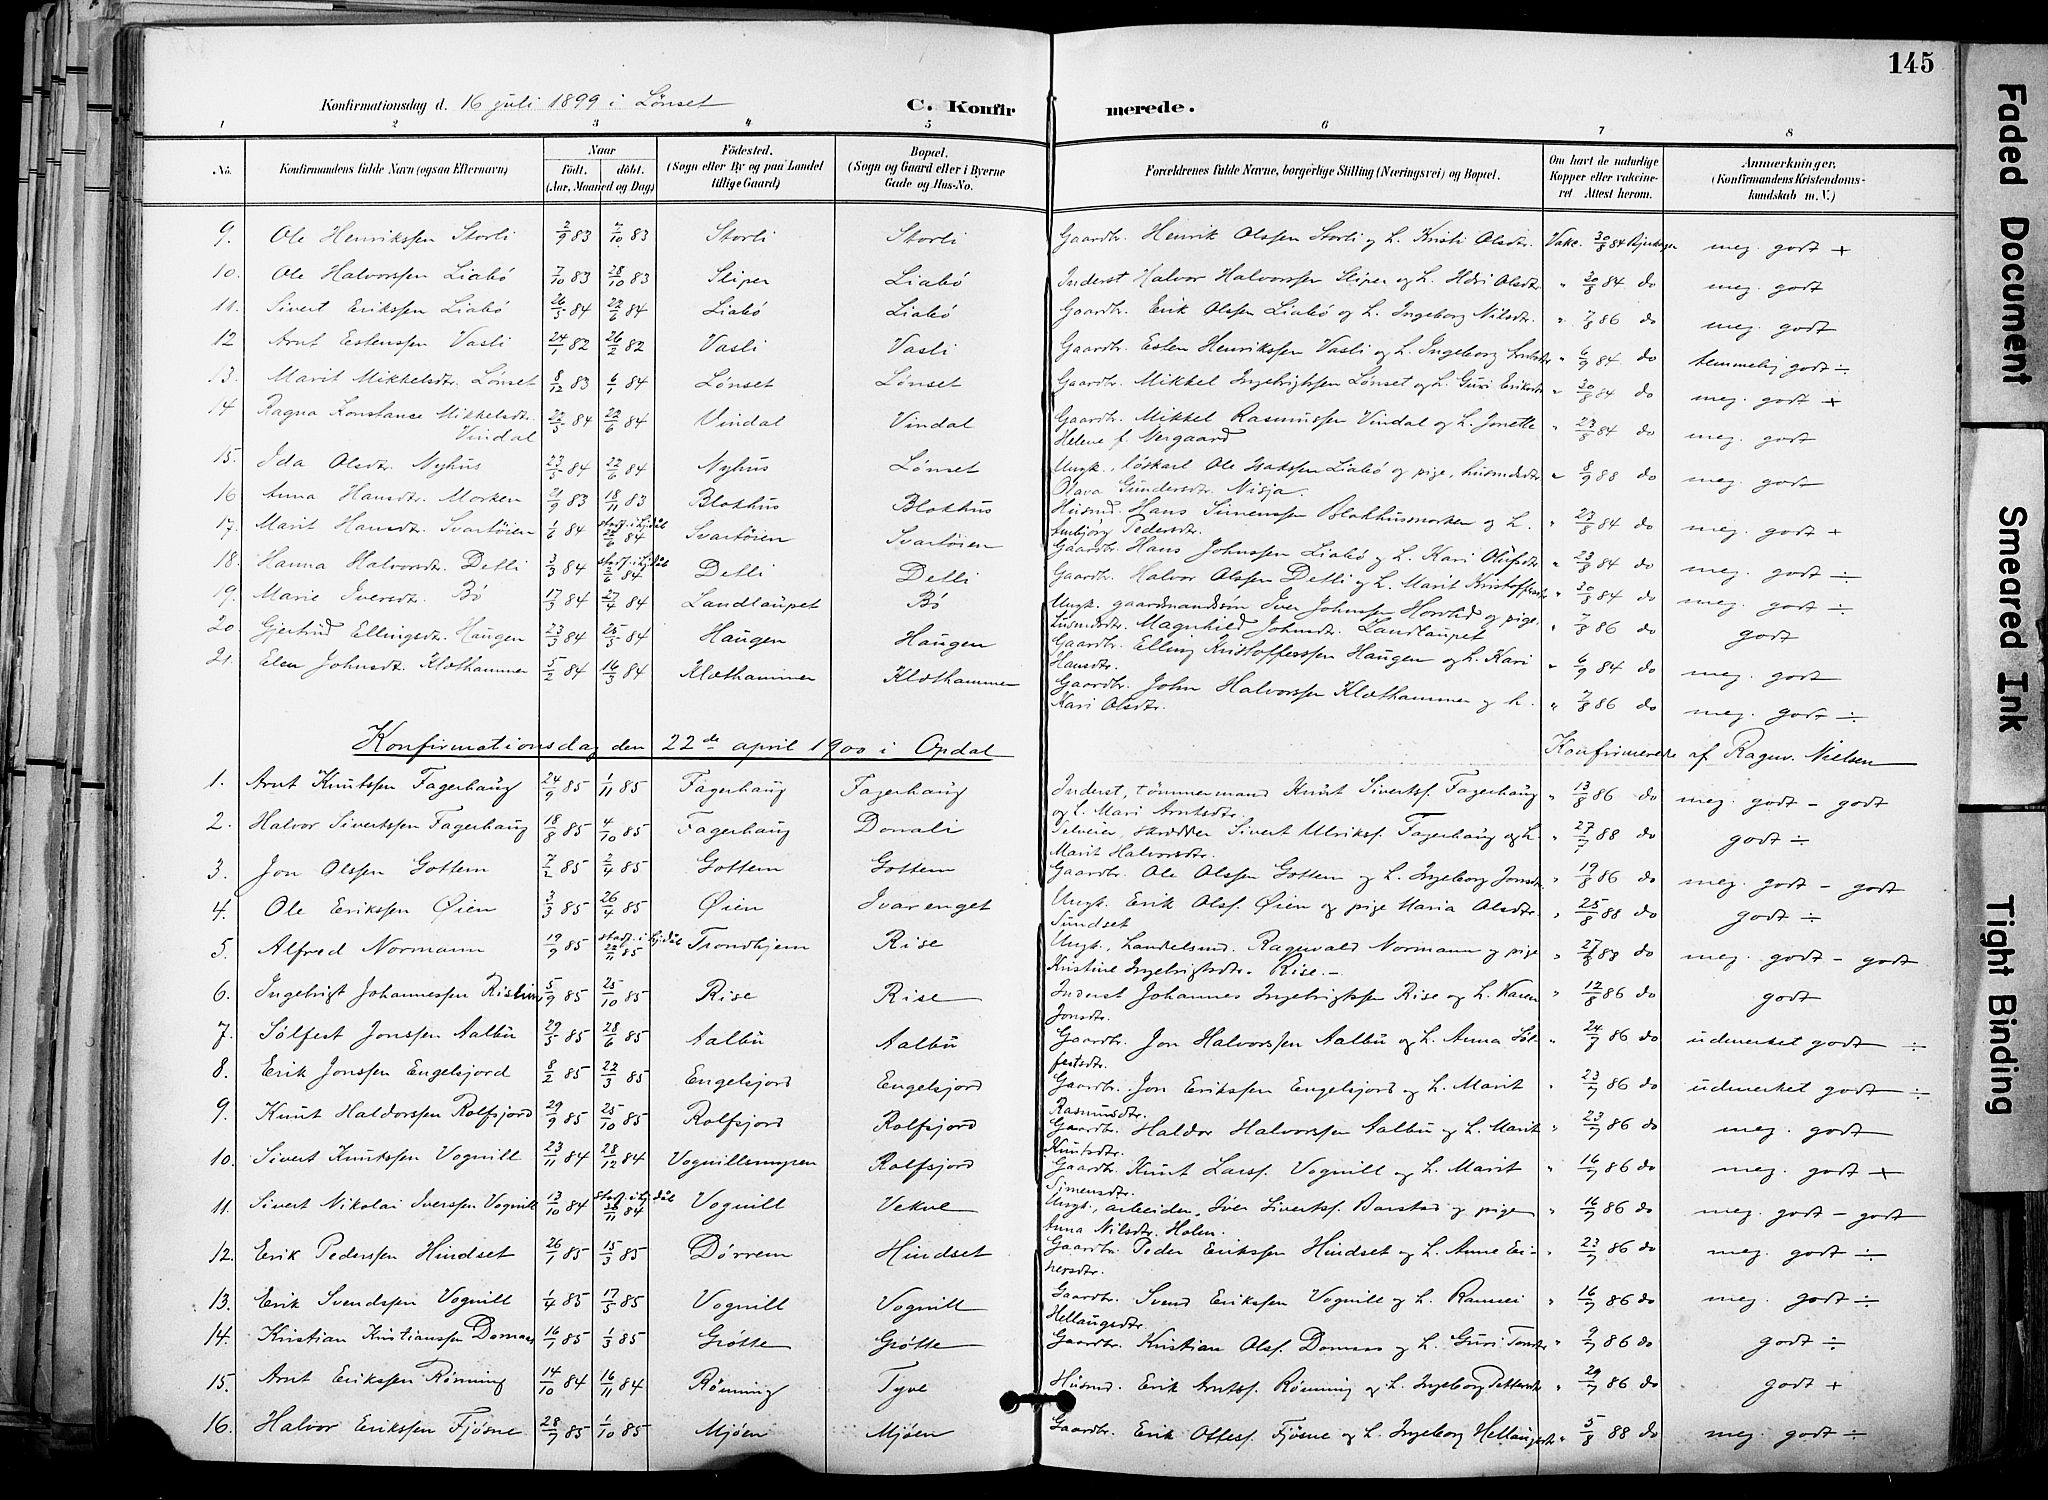 145
Konfirmationsdag d. 16 juli 1899 i Lønset
C. Konfirmerede.
1 2 3 4 5 6 7 8
No. Konfirmandens fulde Navn (ogsaa Efternavn) Naar Født. døbt. (Aar, Maaned og Dag) Fødested. (Sogn eller By og paa Landet tillige Gaard) Bopæl. (Sogn og Gaard eller i Byerne Gade og Hus-No. Forældrenes fulde Navne, borgerlige Stilling (Næringsvei) og Bopæl. Om havt de naturlige Kopper eller vakcineret Attest herom. Anmærkninger. (Konfirmandens Kristendomskundskab m. V.)
9. Ole Henrikssen Storli 2/9 83 7/10 83 Storli Storli Gaardbr. Henrik Olssen Storli og h. Kristi Olsdtr. Vakc. 30/8 84 meg. godt +
10. Ole Halvorssen Liabö 7/10 83 28/10 83 Sliper Liabö Inderst Halvor Halvorssen Sliper og h. Olsdtr. " 30/8 84 do meg. godt
11. Sivert Erikssen Liabö 26/5 84 22/6 84 Liabö Liabö Gaardbr. Erik Olssen Liabö og h. Ingeborg Nilsdtr. " 7/8 86 do meg. godt
12 Arnt Estenssen Vasli 24/1 82 26/2 82 Vasli Vasli Gaardbr. Esten Henrikssen Vasli og h. Ingeborg Arntsdtr " 6/9 84 do temmelig godt ÷
13. Marit Mikkelsdtr. Lønset 8/12 83 6/1 84 Lønset Lønset Gaardbr. Mikkel Ingebrigtssen Lønset og h. Guri Eriksdtr " 30/8 84 do meg. godt +
14 Ragna Konstance Mikkelsdtr. Vindal 22/5 84 22/6 84 Vindal Vindal Gaardbr. Mikkel Rasmussen Vindal og h. Jonette " 23/8 84 do meg. godt
Helene f. Vergaard
15. Ida Olsdtr. Nyhus 23/5 84 22/6 84 Nyhus Lønset Ungk., løskarl Ole Isakssen Liabö og pige, husmdsdtr " 8/9 88 do meg. godt
Olava Gundersdtr. Nisja.
16 Anna Hansdtr. Morken 21/9 83 18/11 83 Blokhus Blokhus Husmd. Hans Simenssen Blokhusmorken og h. " 23/8 84 do meg. godt +
Anbjörg Pedersdtr.
17. Marit Hansdtr. Svartöien 1/6 84 stadf. i hj.döb 22/6 84 Svartöien Svartöien Gaardbr. Hans Johnssen Liabö og h. Kari Olufsdtr " 23/8 84 do meg. godt ÷
18. Hanna Halvorsdtr. Detli 3/3 84 stadf. i hj.döb 2/6 84 Detli Detli Gaardbr. Halvor Olssen Detli og h. Marit Kristoffersdtr " 30/8 84 do meg. godt ÷
19. Marie Iversdtr. Bö 17/3 84 27/4 84 Landlaupet Bö Ungk. gaardmandssøn Iver Johnssen Horvlid og pige, " 7/8 86 do godt
husmdsdtr. Magnhild Johnsdtr. Landlaupet
20 Gjertrud Ellingsdtr. Haugen 23/3 84 25/5 84 Haugen Haugen Gaardbr. Elling Kristofferssen Haugen og h. Kari " 6/9 84 do meg. godt
Hansdtr.
21. Elen Johnsdtr. Klæthammer 5/2 84 16/3 84 Klæthammer Klæthammer Gaardbr. John Halvorssen Klæthammer og h. " 7/8 86 do meg. godt ÷
Kari Olsdtr.
Konfirmationsdag den 22de april 1900 i Opdal Konfirmerede af Ragnv. Nielsen
1. Arnt Knutssen Fagerhaug 24/9 85 1/11 85 Fagerhaug Fagerhaug Inderst, tømmermand Knut Sivertsf. Fagerhaug " 13/8 86 do meg. godt - godt
og h. Mari Arntsdtr.
2. Halvor Sivertssen Fagerhaug 18/8 85 4/10 85 Fagerhaug Donali Selveier, skrædder Sivert Ulriksf. Fagerhaug og h. " 27/7 88 do godt ÷
Marit Halvorsdtr.
3. Jon Olssen Gottem 7/2 85 2/4 85 Gottem Gottem Gaardbr. Ole Olssen Gottem og h. Ingeborg Jonsdtr " 19/8 86 do meg. godt - godt
4. Ole Erikssen Øien 3/3 85 26/4 85 Øien Ivarenget Ungk. Erik Olsf. Øien og pige Maria Olsdtr. " 25/8 88 do godt ÷
Sundset
5. Alfred Normann 19/9 85 stadf. i hj.döb 22/11 85 Trondhjem Rise Ungk., handelsmd. Ragnvald Normann og pige " 27/8 88 do meg. godt - godt
Kristine Ingebrigtsdtr. Rise.
6. Ingebrigt Johannessen Rise 5/9 85 25/10 85 Rise Rise Inderst Johannes Ingebrigtssen Rise og h. Karen " 12/8 86 do godt
Jonsdtr.
7. Sølfest Jonssen Aalbu 29/5 85 28/6 85 Aalbu Aalbu Gaardbr. Jon Halvorssen Aalbu og h. Anna Søl- " 24/7 86 do udmerket godt ÷
festsdtr.
8. Erik Jonssen Engelsjord 8/2 85 22/3 85 Engelsjord Engelsjord Gaardbr. Jon Erikssen Engelsjord og h. Marit " 23/7 86 do udmerket godt ÷
Rasmusdtr.
9. Knut Haldorssen Rolfsjord 29/9 85 25/10 85 Rolfsjord Rolfsjord Gaardbr. Haldor Halvorssen Aalbu og h. Marit " 23/7 86 do meg. godt
Knutsdtr.
10. Sivert Knutssen Vognill 23/11 84 28/12 84 Vognillsmyren Rolfsjord Gaardbr. Knut Larsf. Vognill og h. Marit " 16/7 86 do meg. godt +
Simensdtr.
11. Sivert Nikolai Iverssen Vognill 13/10 84 stadf. i hj.döb 84 Vognill Vekve Ungk., arbeider, Iver Sivertsf. Barstad og pige " 16/7 86 do meg. godt - godt
Anna Nilsdtr. Holen.
12. Erik Pederssen Hindset 26/1 85 15/3 85 Dörrem Hindset Gaardbr. Peder Erikssen Hindset og h. Anne Ei- " 23/7 86 do meg. godt ÷
nersdtr.
13. Erik Svendssen Vognill 1/4 85 17/5 85 Vognill Vognill Gaardbr. Svend Erikssen Vognill og h. Ramsei " 16/7 86 do meg. godt ÷
Hellaugsdtr.
14. Kristian Kristianssen Domaas 16/1 85 1/3 85 Grötte Grötte Gaardbr. Kristian Olsf. Domaas og h. Guri Tonsdtr " 9/7 86 do godt ÷
15. Arnt Erikssen Rönning 14/10 84 16/11 84 Rönning Tyve Husmd. Erik Arntsf. Rönning og h. Ingeborg Pettersdtr " 29/7 86 do godt +
16. Halvor Erikssen Fjösne 28/7 85 1/10 85 Mjöen Mjöen Gaardbr. Erik Ottesf. Fjösne og h. Ingeborg Hellaugsdtr " 5/8 88 do meg. godt ÷
Faded Document
Smeared Ink
Tight Binding